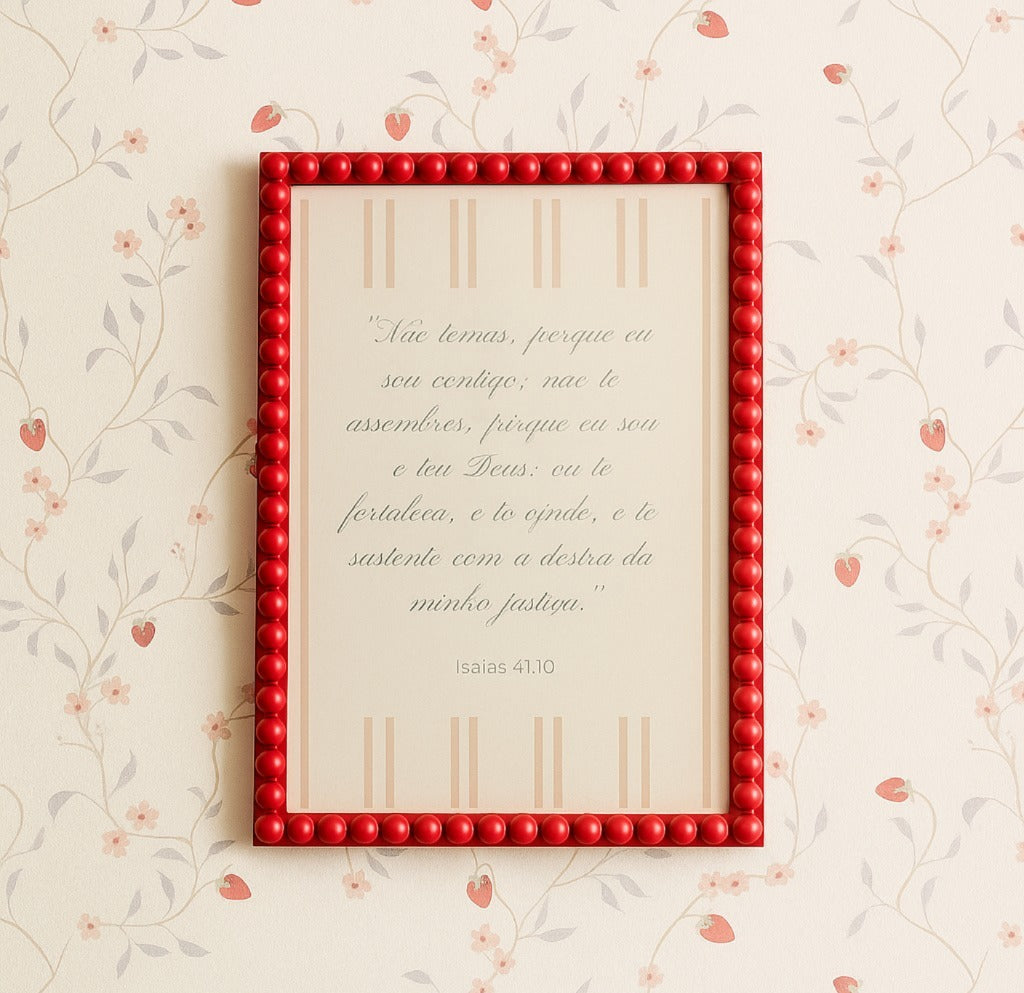 "Nac temas, perque eu
sou centigo; nae te
assembres, pirque eu sou
e teu Deus: ou te
fertaleea, e to ojnde, e te
sustente com a destra da
minko jastiya."
Isaias 41.10